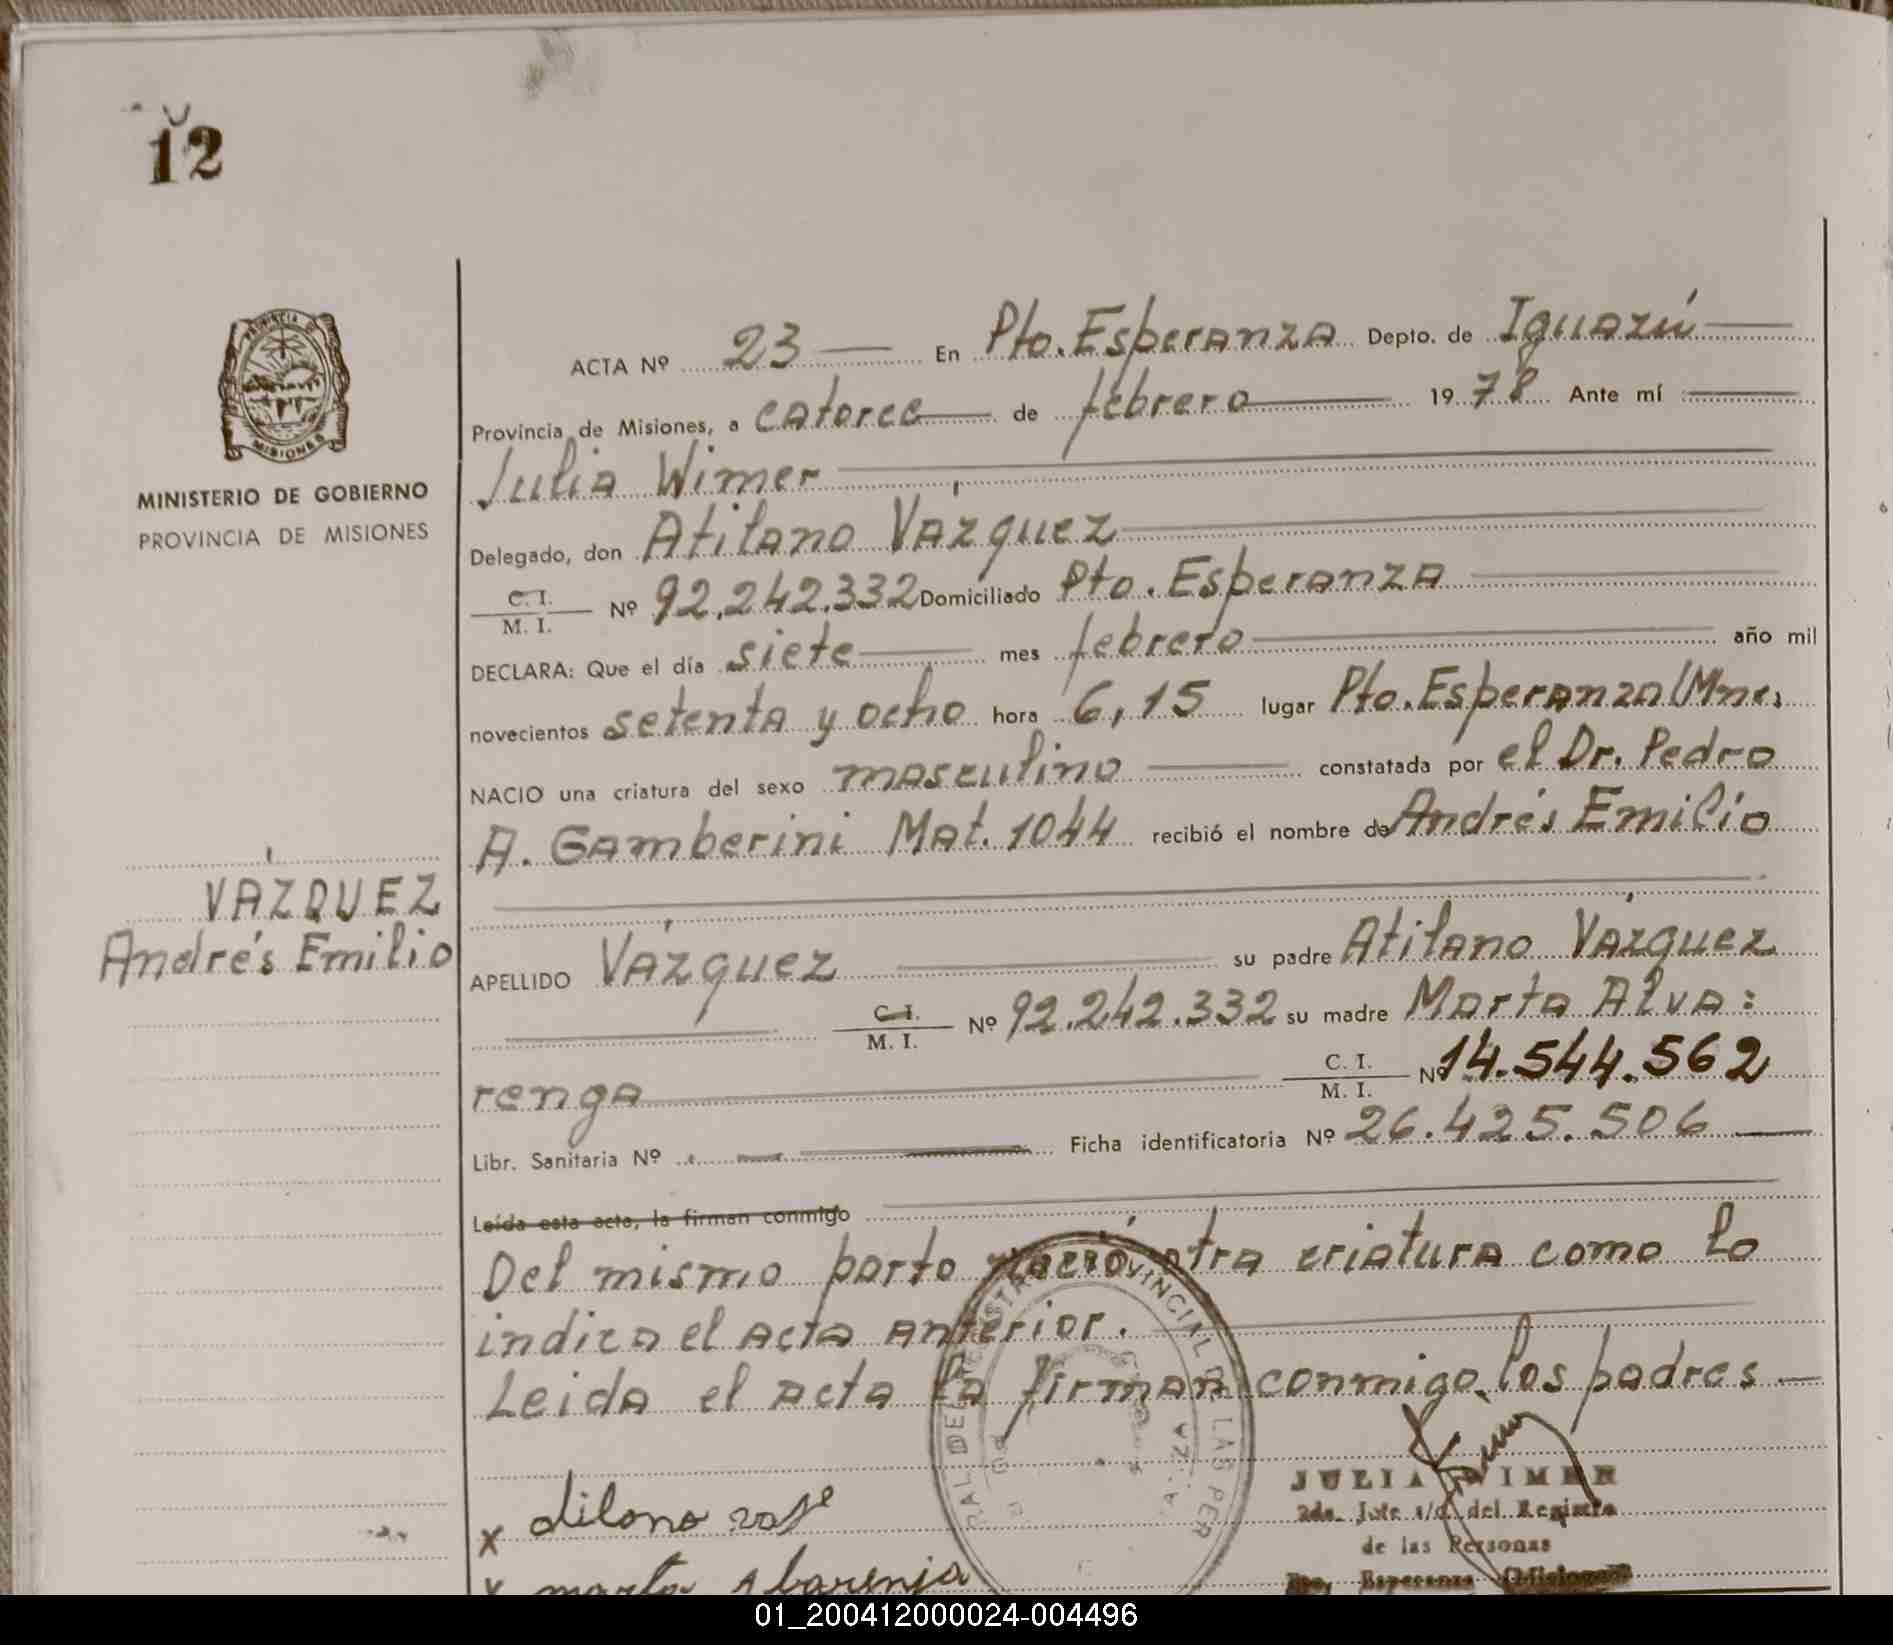 12
PROVINCIA DE
MISIONES
MINISTERIO DE GOBIERNO
PROVINCIA DE MISIONES
VÁZQUEZ
Andrés Emilio
ACTA Nº 23 — En Pto. Esperanza Depto. de Iguazú —
Provincia de Misiones, a catorce — de febrero — 1978 Ante mí —
Julia Wimer —
Delegado, don Atilano Vázquez —
C. I. / M. I. Nº 92.242.332 Domiciliado Pto. Esperanza —
DECLARA: Que el día siete — mes febrero — año mil
novecientos setenta y ocho hora 6,15 lugar Pto. Esperanza (Mnes
NACIO una criatura del sexo masculino — constatada por el Dr. Pedro
A. Gamberini Mat. 1044 recibió el nombre de Andrés Emilio
—
APELLIDO Vázquez — su padre Atilano Vázquez
— C. I. / M. I. Nº 92.242.332 su madre Marta Alva:
renga — C. I. / M. I. Nº 14.544.562
Libr. Sanitaria Nº — Ficha identificatoria Nº 26.425.506 —
Leída esta acta, la firman conmigo —
Del mismo parto nació otra criatura como lo
indica el acta anterior. —
Leida el acta la firman conmigo los padres —
JULIA WIMER
2da. Jefe s/c. del Registro
de las Personas
Pto. Esperanza (Misiones)
x
marta
01_200412000024-004496